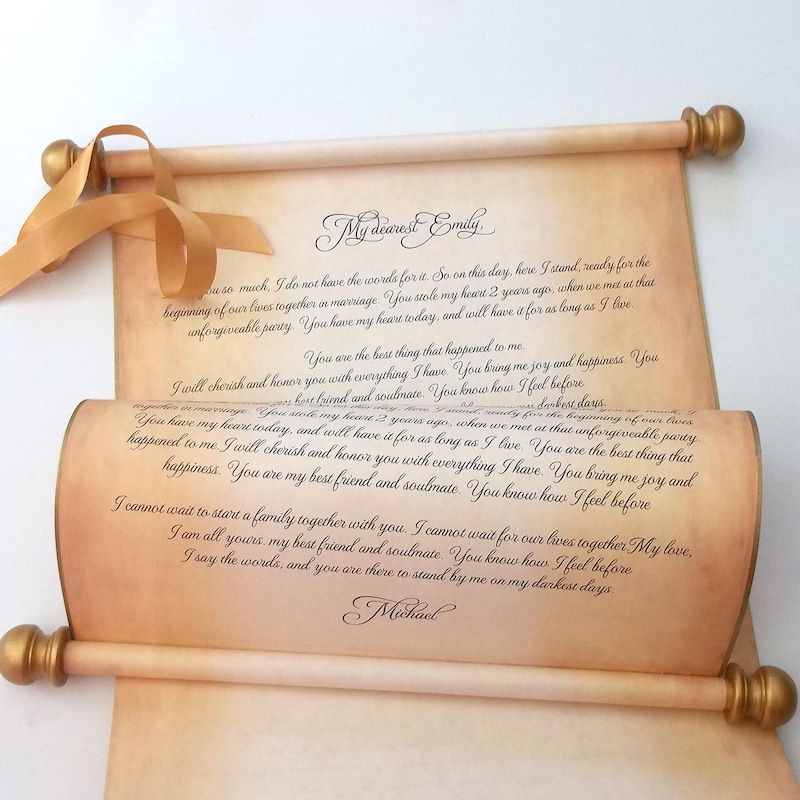 My dearest Emily,
you so much, I do not have the words for it. So on this day, here I stand, ready for the
beginning of our lives together in marriage. You stole my heart 2 years ago, when we met at that
unforgiveable party. You have my heart today, and will have it for as long as I live.
You are the best thing that happened to me.
I will cherish and honor you with everything I have. You bring me joy and happiness. You
best friend and soulmate. You know how I feel before
darkest days.
together in marriage. You stole this day, here I stand, ready for the beginning of our lives
You have my heart today, and will have it for as long as I live. You are the best thing that
my heart 2 years ago, when we met at that unforgiveable party.
happened to me.I will cherish and honor you with everything I have. You bring me joy and
happiness. You are my best friend and soulmate. You know how I feel before
I cannot wait to start a family together with you. I cannot wait for our lives together.My love,
I am all yours. my best friend and soulmate. You know how I feel before
I say the words, and you are there to stand by me on my darkest days.
Michael